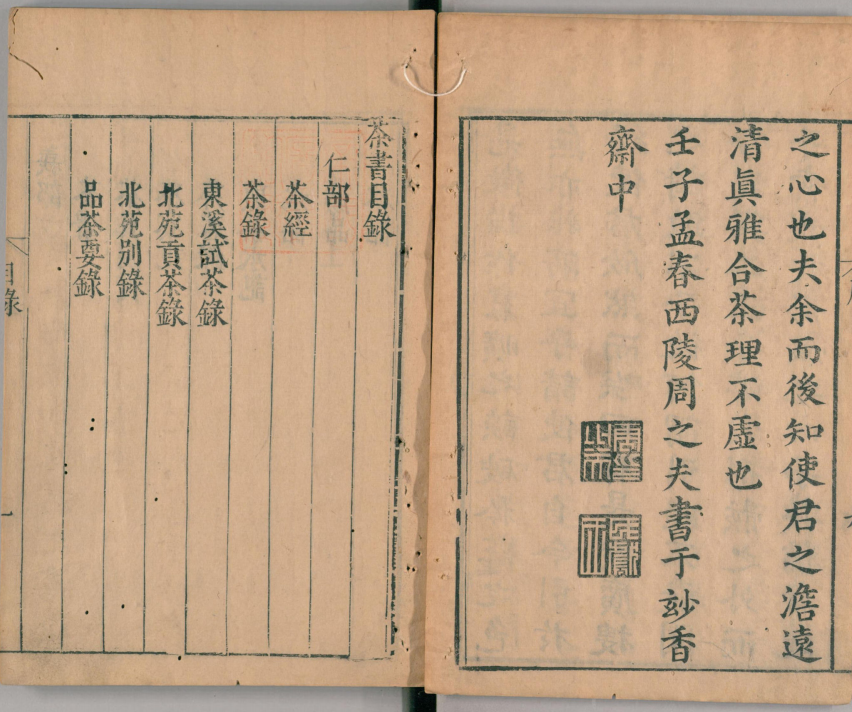 之心也夫余而後知使君之澹遠
清眞雅合茶理不虛也
壬子孟春西陵周之夫書于玅香
齋中
茶書目錄
仁部
茶經
茶錄
東溪試茶錄
北苑貢茶錄
北苑别錄
品茶要錄
目錄